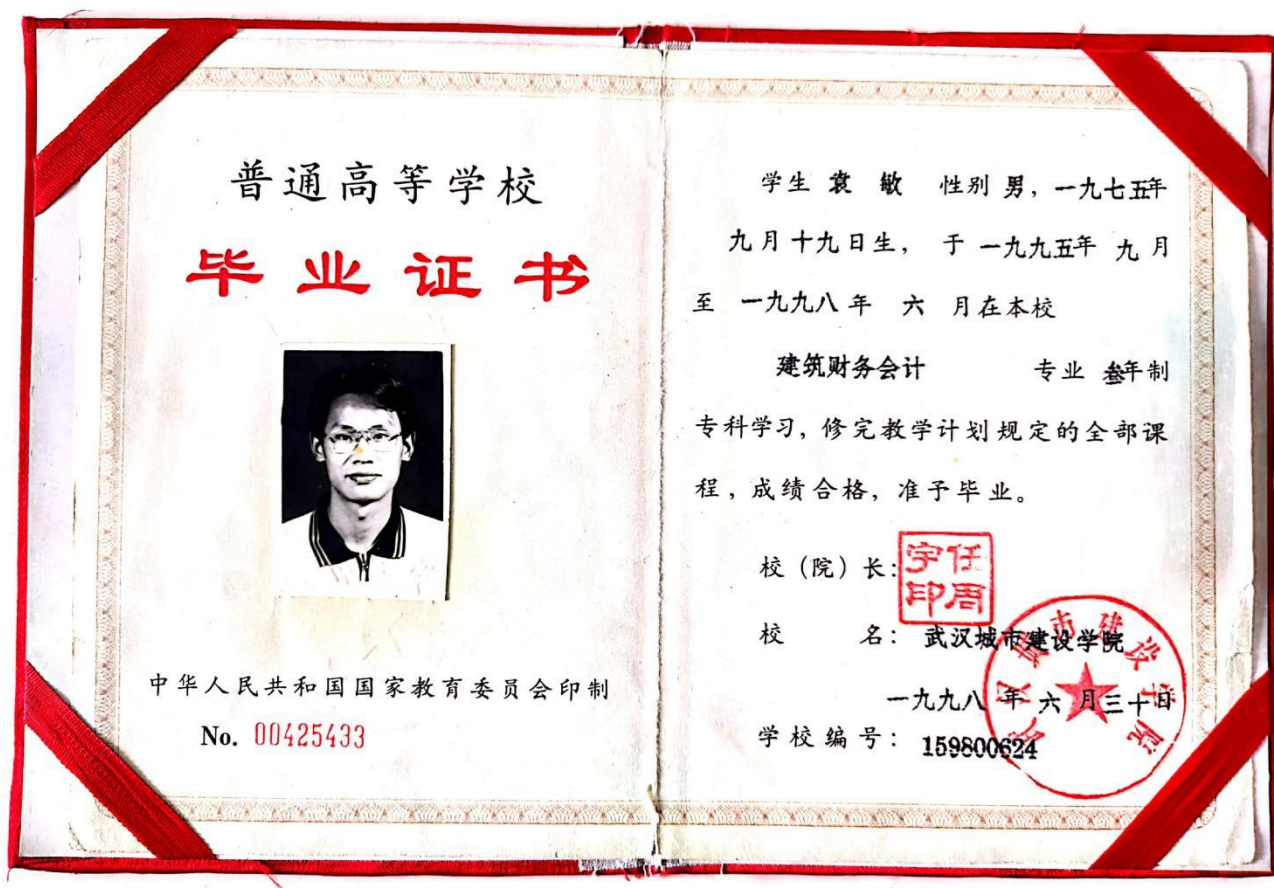 普通高等学校
毕业证书
中华人民共和国国家教育委员会印制
No. 00425433
学生 袁敏 性别 男，一九七五年
九月十九日生， 于 一九九五年 九月
至 一九九八年 六 月在本校
建筑财务会计 专业 叁年制
专科学习，修完教学计划规定的全部课
程，成绩合格，准予毕业。
校（院）长：
任周宇印
校 名：武汉城市建设学院
武汉城市建设学院
一九九八年六月三十日
学校编号：159800624